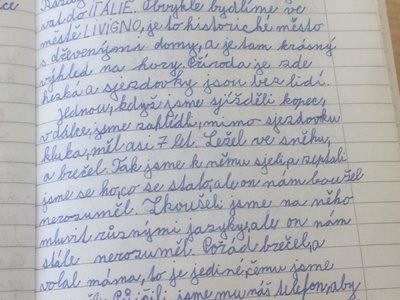 val do ITÁLIE. Obvykle bydlíme ve
městě LIVIGNO, je to historické město
s dřevenými domy, a je tam krásný
výhled na hory. Příroda je zde
hezká a sjezdovky jsou bez lidí.
Jednou, když jsme sjížděli kopec,
v dálce jsme zahlédli, mimo sjezdovku
kluka, měl asi 7 let. Ležel ve sněhu,
a brečel. Tak jsme k němu sjeli, a zeptali
jsme se ho, co se stalo, ale on nám boužel
nerozuměl. Zkoušeli jsme na něho
mluvit různými jazyky, ale on nám
stále nerozuměl. Pořád brečel, a
volal máma, to je jediné, čemu jsme
jsme mu náš telefon, aby